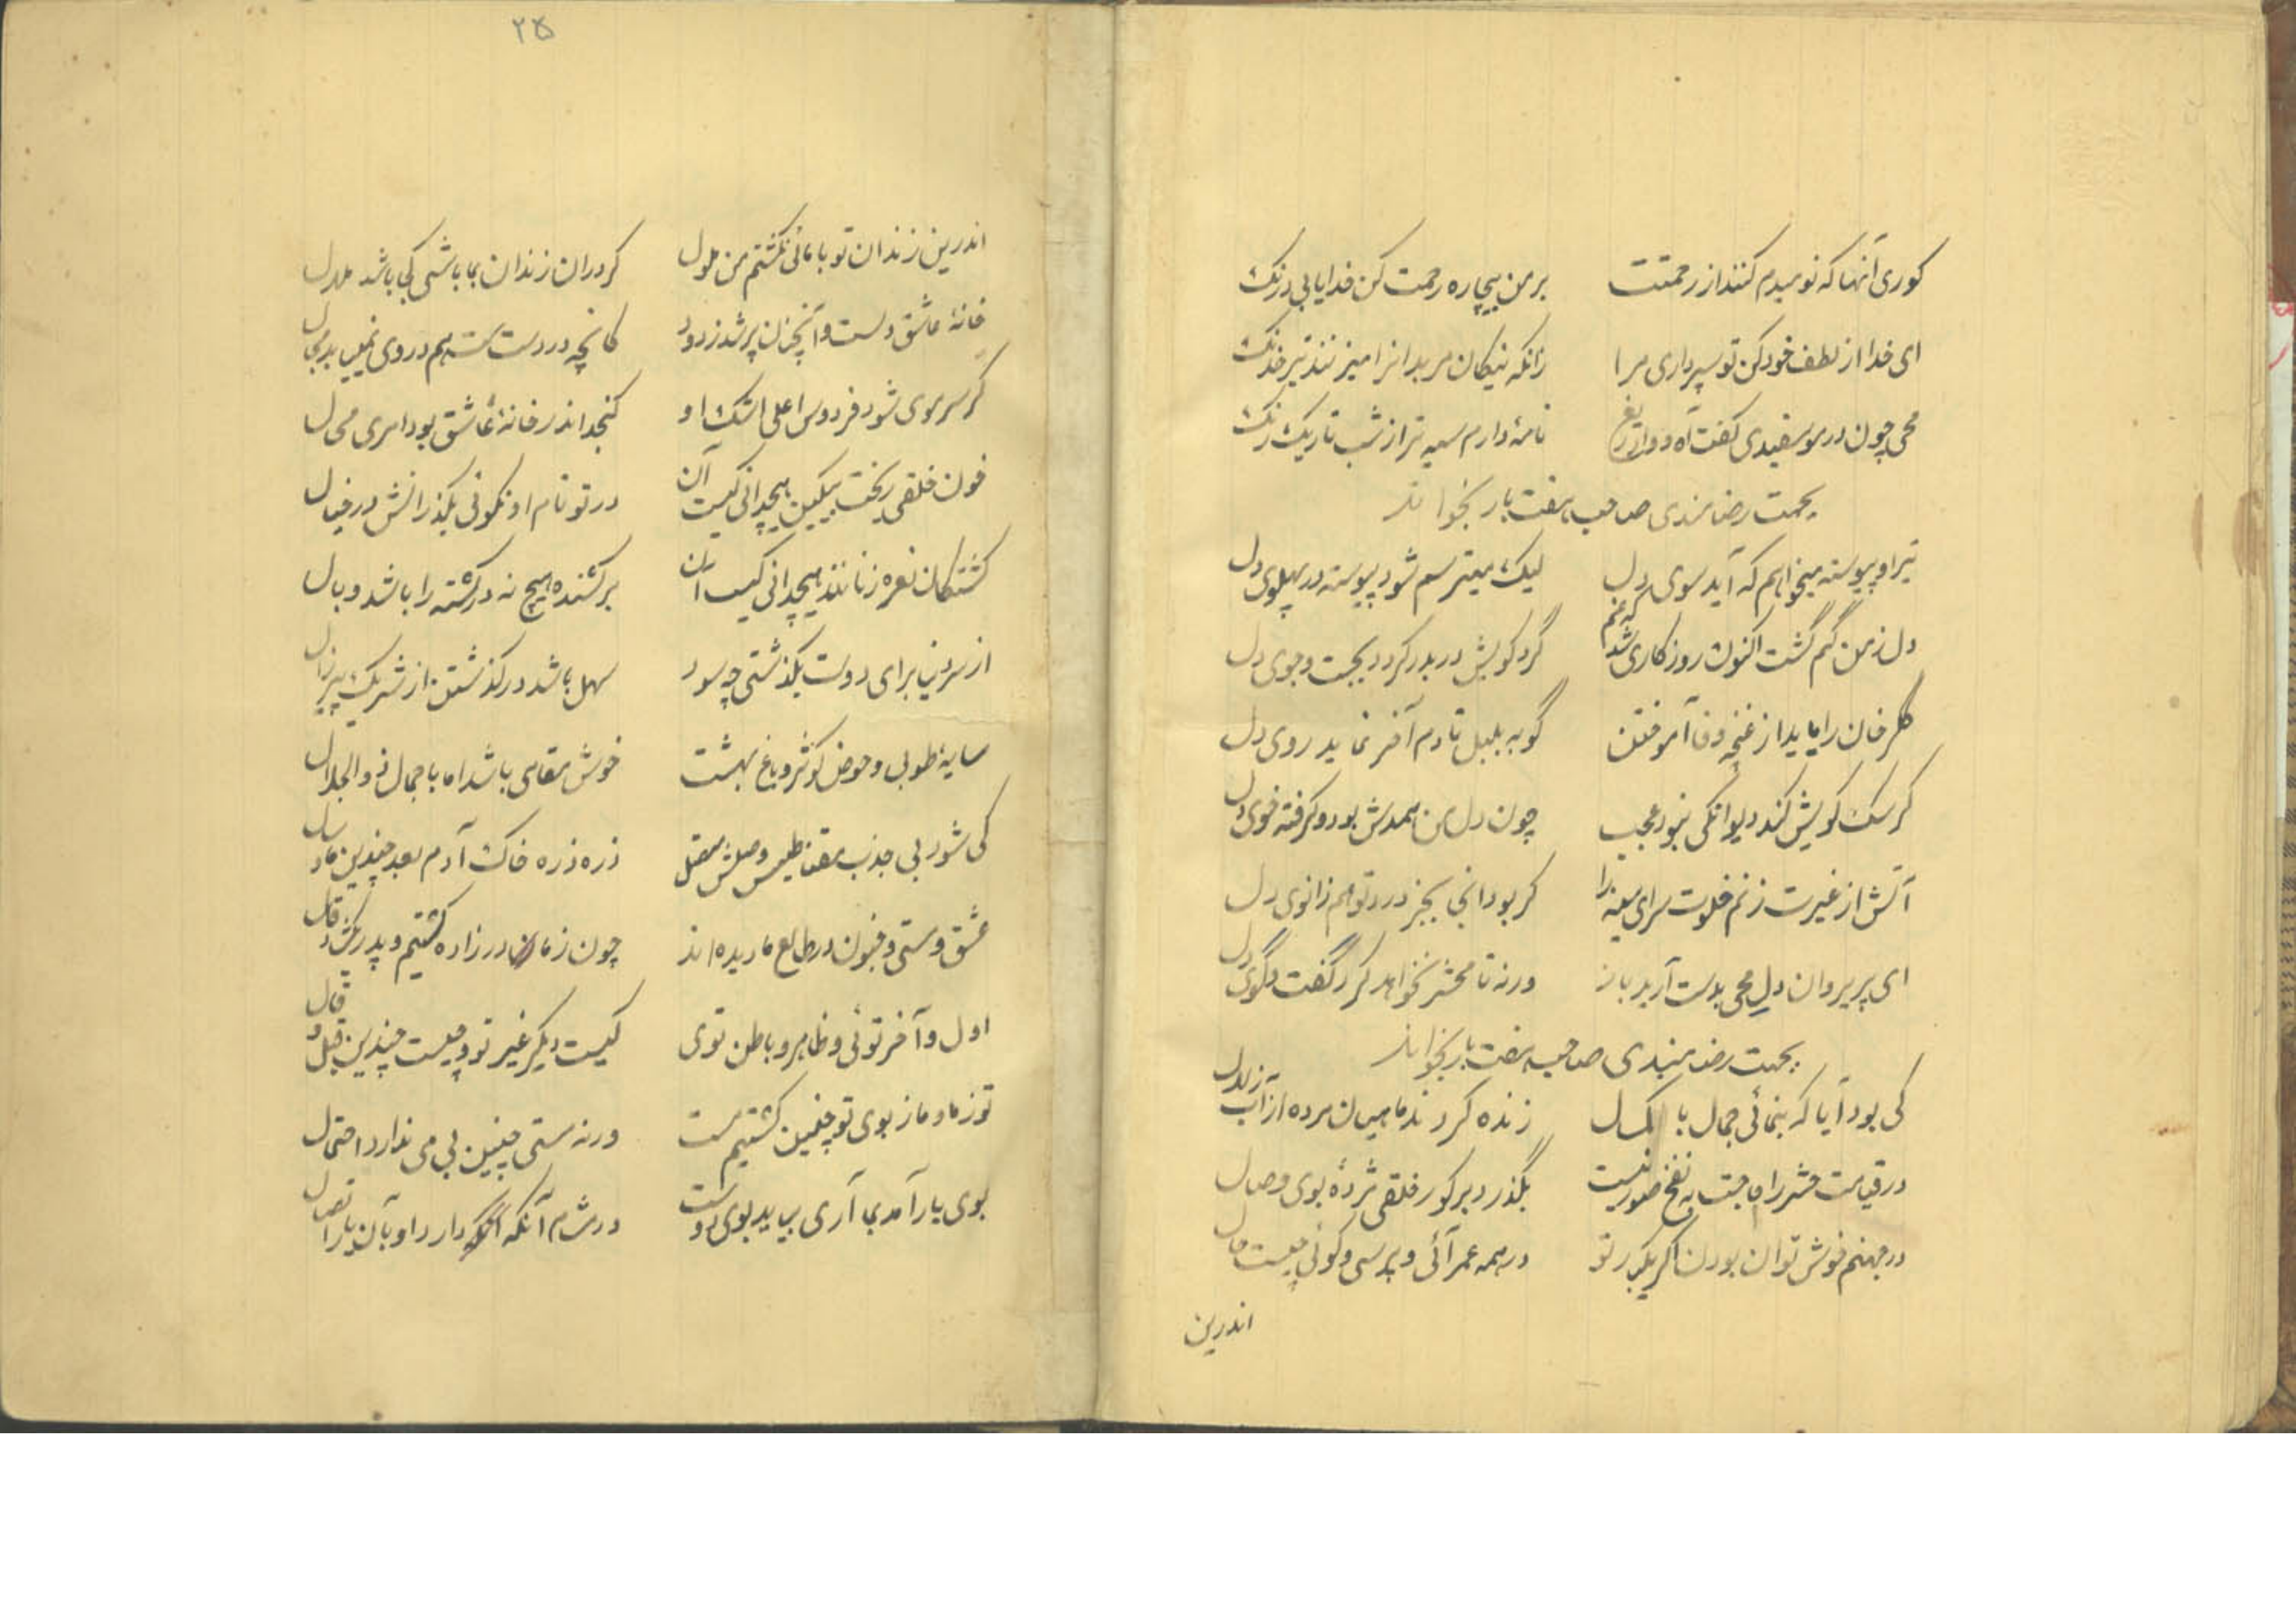 کوری آنها که نومیدم کنند از رحمتت برمن بیچاره رحمت کن خدایا بی درنگ
ای خدا از لطف خود کن تو سپرداری مرا زانکه نیکان مر بدانرا میزنند تیر خدنگ
محی چون در مو سفیدی گفت آه و وا دریغ نامهٔ دارم سیه تر از شب تاریک رنگ
بجهت رضامندی صاحب هفت بار بخواند
تیر او پیوسته میخواهم که آید سوی دل لیک میترسم شود پیوسته در پهلوی دل
دل ز من گم گشت اکنون روزگاری شد که غم گرد کویش دربدر گردد بجست و جوی دل
گلرخان را باید از غنچه وفا آموختن گو به بلبل تا دم آخر نماید روی دل
گر سک کویش کند دیوانگی نبود عجب چون دل من همدمش بود و گرفته خوی دل
آتش از غیرت زنم خلوت سرای سینه را گر بود آنجا بجز درد تو هم زانوی دل
ای پریرویان دلِ محی بدست آرید باز ورنه تا محشر نخواهد کرد گفت و گوی دل
بجهت رضامندی صاحب هفت بار بخواند
کی بود آیا که بنمائی جمال با کمال زنده گردند ماهیان مرده از آب زلال
در قیامت حشر را حاجت به نفخ صور نیست بگذرد بر کور خلقی مژدهٔ بوی وصال
در جهنم خوش توان بودن اگر یکبار تو در همه عمر آئی و پرسی و گوئی چیست حال
اندرین
۲۵
اندرین زندان تو با مائی نگشتم من ملول گر دران زندان بما باشی کی باشد ملال
خانهٔ عاشق دلست و آنچنان پر شد ز دود کانچه در دست هم در وی نمییابد مجال
گر سر موی شود فردوس اعلی اشک او گنجد اندر خانهٔ عاشق بود امری محال
خون خلقی ریخت بیکین هیچدانی کیست آن در تو نام او نگوئی بگذرانش در خیال
کشتگان نعره زنانند هیچدانی کیست آن بر کشنده هیچ نه در کشته را باشد وبال
از سر دنیا برای دوست بگذشتی چه سود سهل باشد در گذشتن از سر یک پیر زال
سایهٔ طوبی و حوض کوثر و باغ بهشت خوش مقامی باشد اما با جمال ذو الجلال
کی شود بی جذب مقناطیس وصلش متصل ذره ذره خاک آدم بعد چندین ماه و سال
عشق و مستی و جنون در طالع ما دیده اند چون ز مادر زاده گشتیم و پدر بکشاد فال
اول و آخر توئی و ظاهر و باطن توی کیست دیگر غیر تو و چیست چندین قیل و قال
تو ز ما و ما ز بوی تو چنین گشتیم مست ورنه مستی چنین بی می ندارد احتمال
بوی یار آمد بما آری بیاید بوی دوست در مشام آنکه دارد او بآن یار اتصال